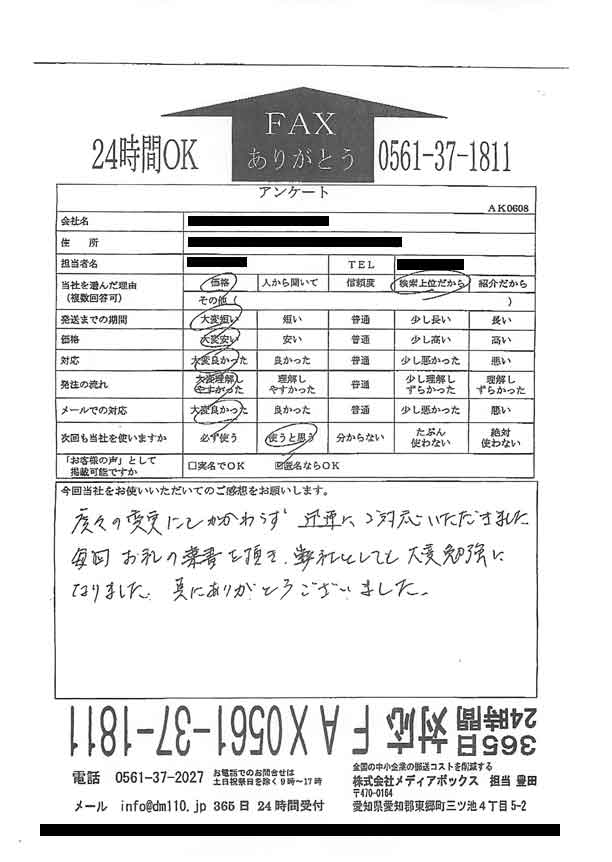 FAX
ありがとう
24時間OK
0561-37-1811
アンケート
AK0608
会社名
住 所
担当者名 TEL
当社を選んだ理由 (複数回答可) 価格 人から聞いて 信頼度 検索上位だから 紹介だから
その他 ( )
発送までの期間 大変短い 短い 普通 少し長い 長い
価格 大変安い 安い 普通 少し高い 高い
対応 大変良かった 良かった 普通 少し悪かった 悪い
発注の流れ 大変理解しやすかった 理解しやすかった 普通 少し理解しずらかった 理解しずらかった
メールでの対応 大変良かった 良かった 普通 少し悪かった 悪い
次回も当社を使いますか 必ず使う 使うと思う 分からない たぶん使わない 絶対使わない
「お客様の声」として掲載可能ですか □実名でOK ☑匿名ならOK
今回当社をお使いいただいてのご感想をお願いします。
度々の変更にもかかわらず 迅速に ご対応いただきました
毎回 お礼の葉書を頂き、弊社としても 大変勉強に
なりました。真にありがとうございました。
365日 24時間 対応 FAX0561-37-1811
電話 0561-37-2027 お電話でのお問合せは 土日祝祭日を除く9~17時
メール info@dm110.jp 365日 24時間受付
全国の中小企業の郵送コストを削減する
株式会社メディアボックス 担当 豊田
〒470-0164
愛知県愛知郡東郷町三ツ池4丁目5-2